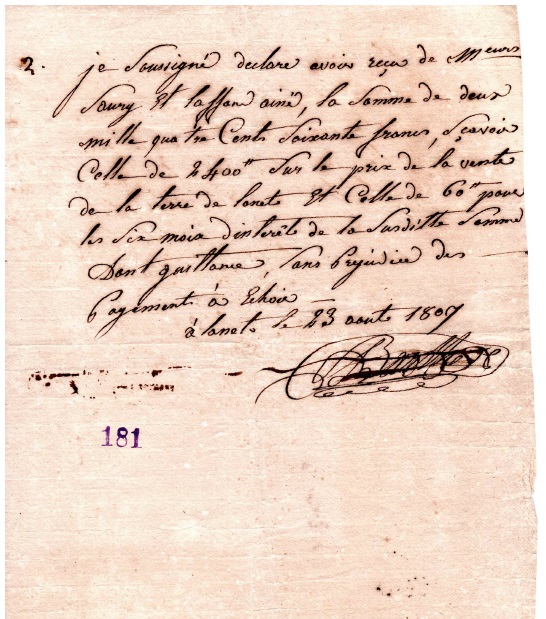 2. je Soussigné declare avoir reçu de Meurs
Soury Et laffon ainé, la Somme de deux
mille quatre Cents Soixante francs, Sçavoir
Celle de 2400" Sur le prix de la vente
de la terre de lanet Et Celle de 60" pour
les Six mois d'interêts de la Susditte Somme
Dont quittance, Sans Prejudice des
Payements à Echoir
à lanet le 23 aout 1807
181